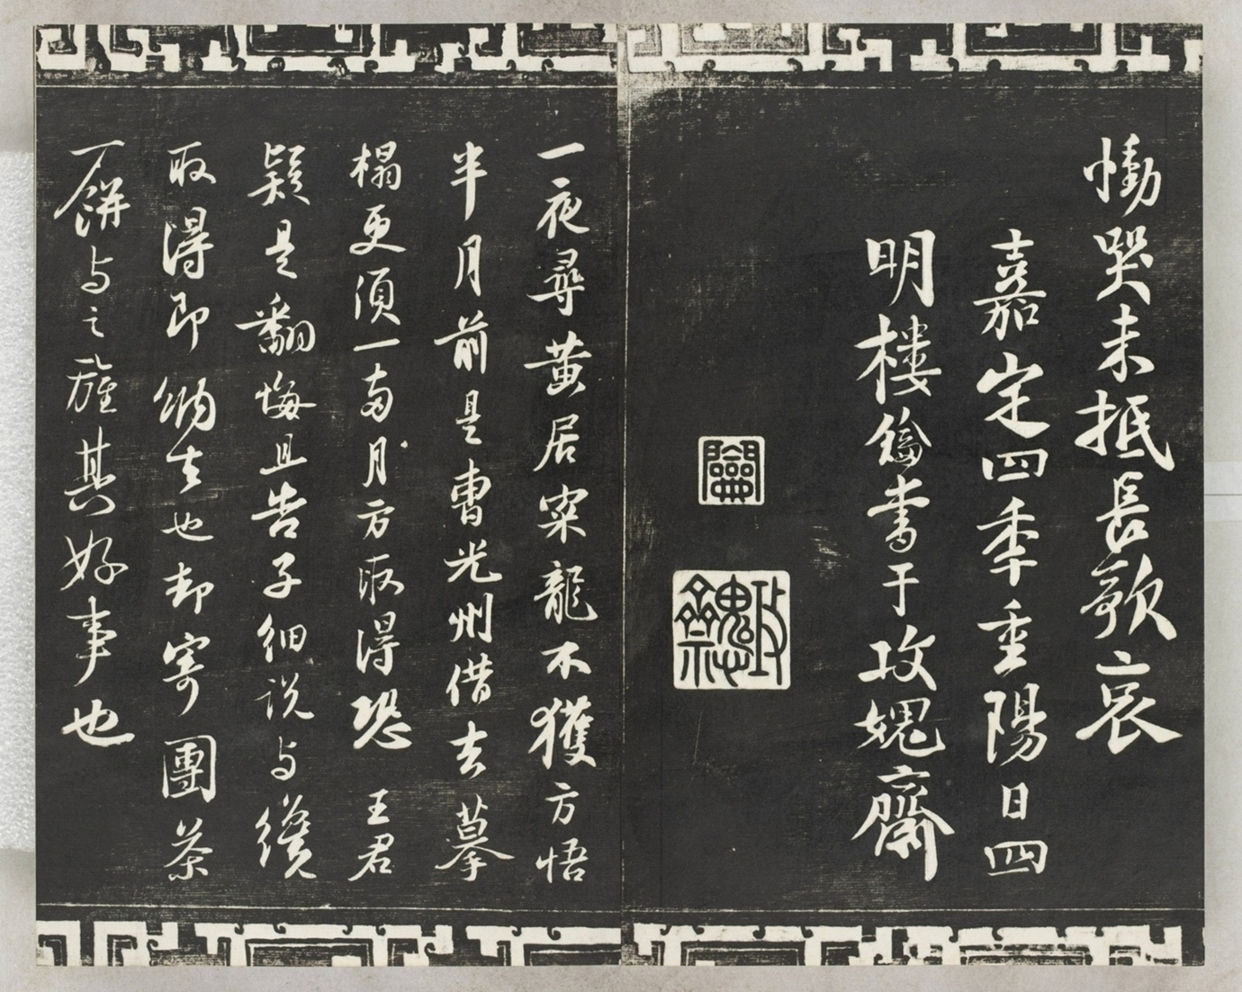 慟哭未抵長歌哀
嘉定四季重陽日四
明樓鑰書于攻媿齋
攻媿齋
一夜尋黃居寀龍不獲方悟
半月前是曹光州借去摹
榻更須一兩月方取得恐王君
疑是翻悔且告子細說與纔
取得即納去也却寄團茶
一餅与之旌其好事也